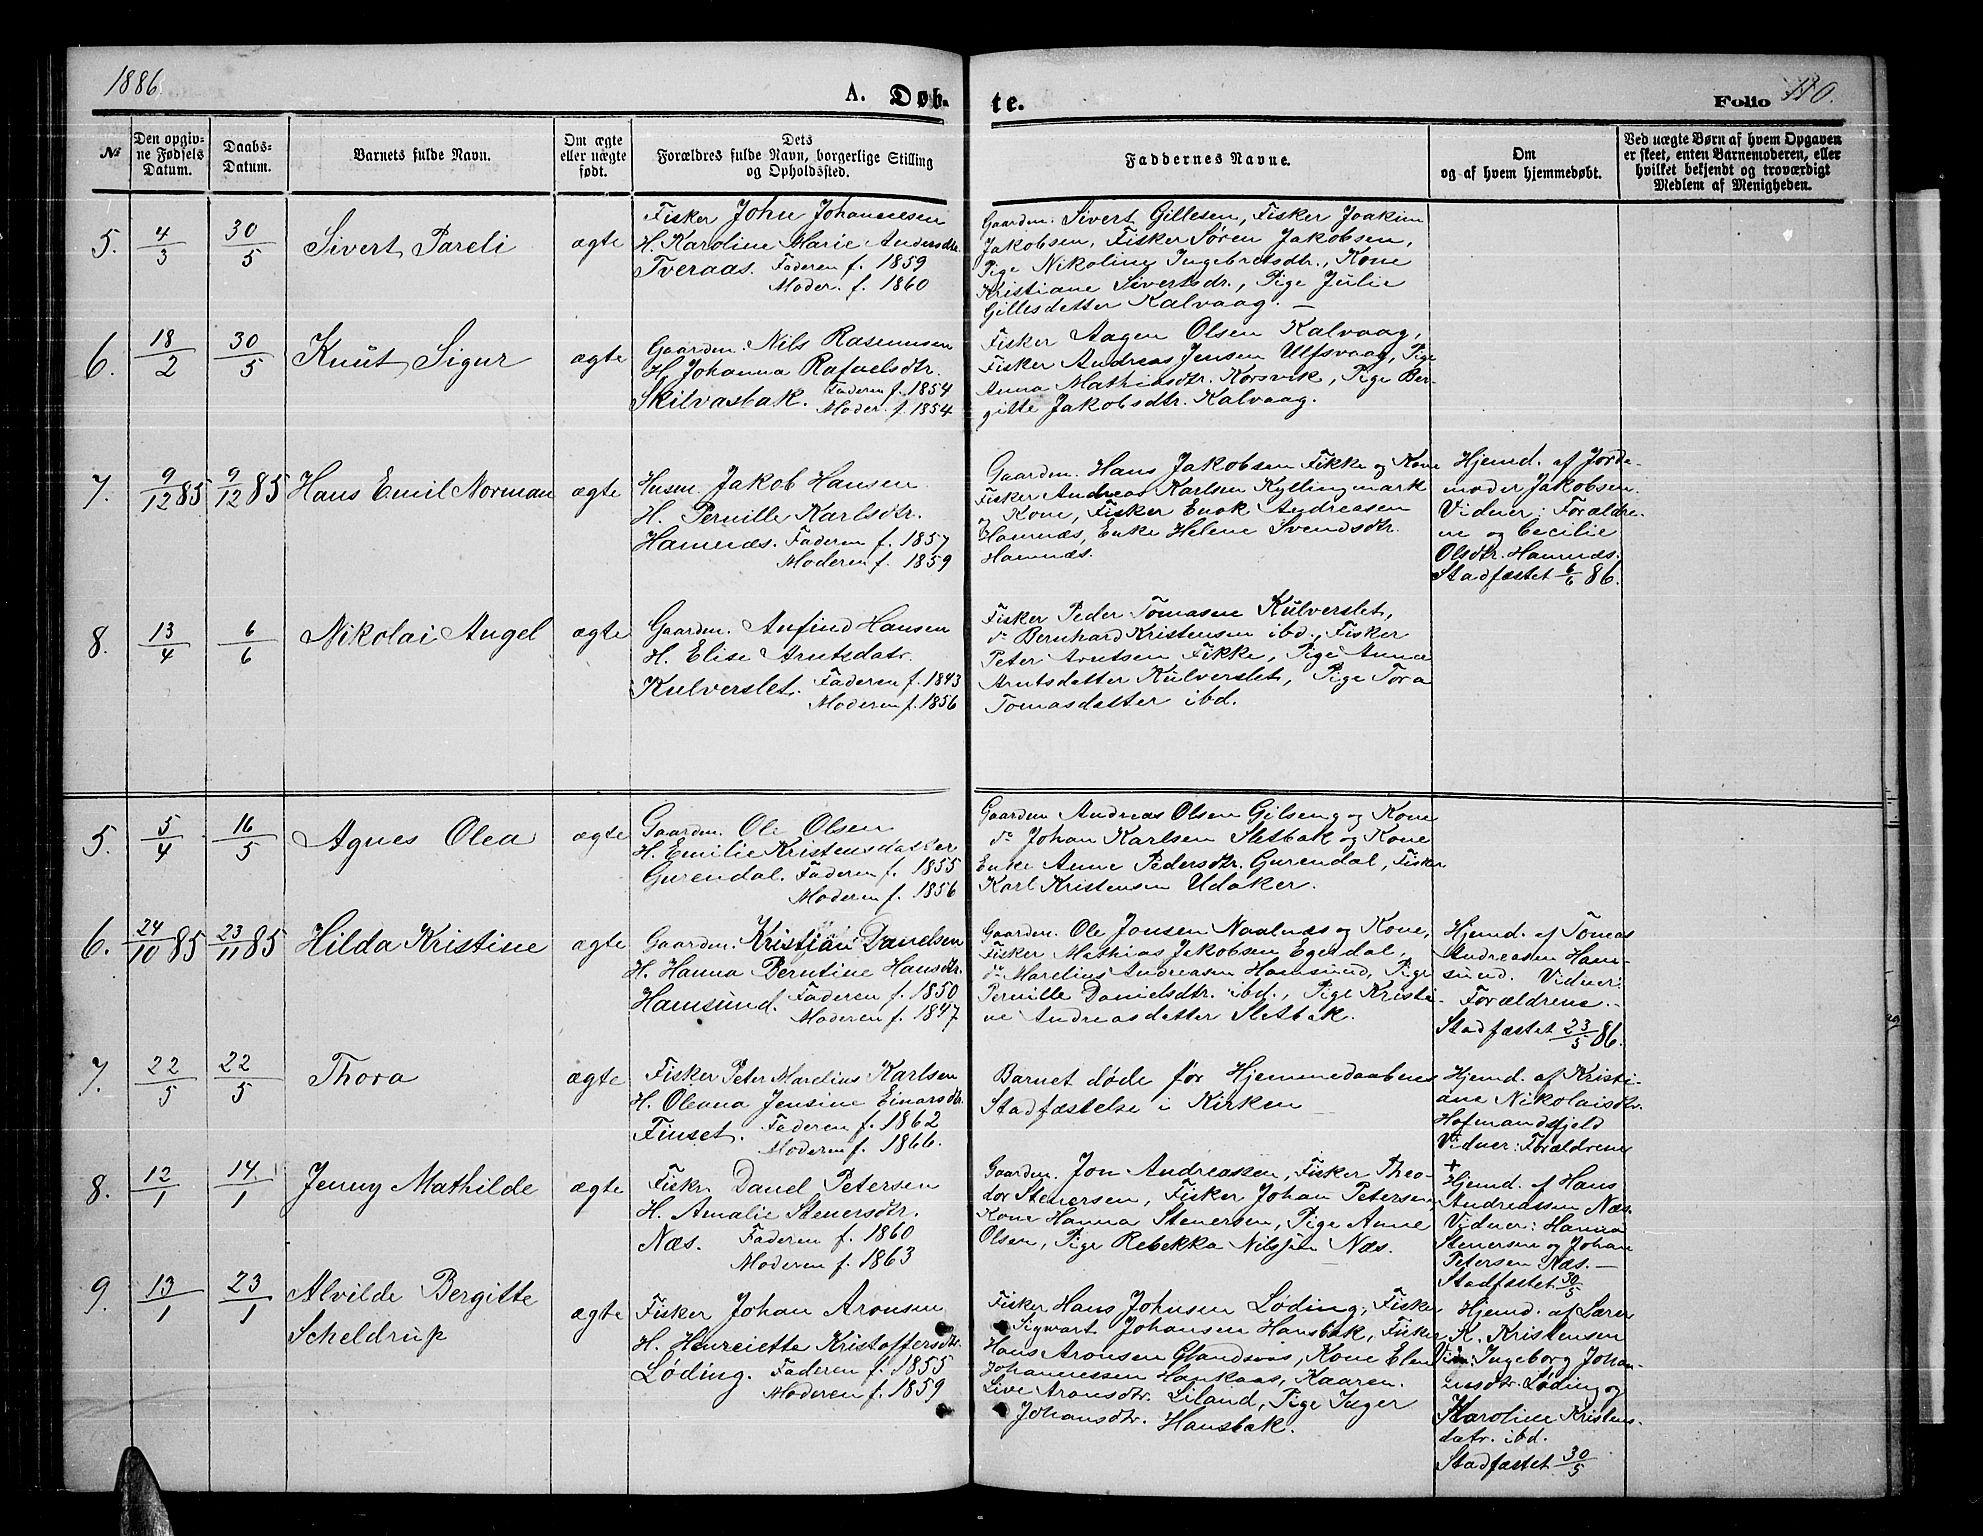 1886.
A. Døb-
te.
Folio 110.
No
Den opgiv-
ne Fødsels
Datum.
Daabs-
Datum.
Barnets fulde Navn.
Om ægte
eller uægte
født.
Dets
Forældres fulde Navn, borgerlige Stilling
og Opholdssted.
Faddernes Navne.
Om
og af hvem hjemmedøbt.
Ved uægte Børn af hvem Opgaven
er skeet, enten Barnemoderen, eller
hvilket bekjendt og troværdigt
Medlem af Menigheden.
5.
4/3
30/5
Sivert Pareli
ægte
Fisker John Johannesen
H. Karoline Marie Andersdtr.
Tveraas. Faderen f. 1859
Moder. f. 1860
Gaardm. Sivert Gillesen, Fisker Joakim
Jakobsen, Fisker Søren Jakobsen,
Pige Nikoline Ingebretsdtr., Kone
Kristiane Sivertsdr., Pige Julie
Gillesdatter Kalvaag. —
6.
18/2
30/5
Knut Sigur
ægte
Gaardm. Nils Rasmusen
H. Johanna Rafaelsdtr.
Skilvasbak. Faderen f. 1854
Moder. f. 1854
Fisker Aagen Olsen Kalvaag,
Fisker Andreas Jensen Ulfsvaag, Pige
Anna Mathiasdtr. Korsvik, Pige Ber-
gitte Jakobsdtr. Kalvaag.
7.
9/12 85
9/12 85
Hans Emil Norman
ægte
Husm. Jakob Hansen
H. Pernille Karlsdtr.
Hamnæs. Faderen f. 1857
Moderen f. 1859
Gaardm. Hans Jakobsen Fikke og Kone
Fisker Andreas Karlsen Kyllingmark
Kone, Fisker Enok Andreasen
Hamnæs, Enke Helene Svendsdtr.
Hamnæs.
Hjemd. af Jorde-
moder Jakobsen.
Vidner: Forældre-
ne og Cecilie
Olsdtr. Hamnæs.
Stadfæstet 6/6 86.
8.
13/4
6/6
Nikolai Angel
ægte
Gaardm. Anfind Hansen
H. Elise Arntzdatr.
Kulverslet. Faderen f. 1843
Moderen f. 1856
Fisker Peder Tomasne Kulverslet,
do Bernhard Kristensen ibd., Fisker
Peter Arntsen Fikke, Pige Anna
Arntsdatter Kulverslet, Pige Tora
Tomasdatter ibd.
5.
5/4
16/5
Agnes Olea
ægte
Gaardm. Ole Olsen
H. Emilie Kristensdatter
Gurendal. Faderen f. 1855
Moderen f. 1856
Gaardm Andreas Olsen Gilseng og Kone
do Johan Karlsen Sletbak og Kone
Enke Anne Pedersdtr. Gurendal, Fisker
Karl Kristensen Udaker.
6.
24/10 85
23/11 85
Hilda Kristine
ægte
Gaardm. Kristian Danelsen
H. Hanna Berntine Hansdtr.
Hamsund. Faderen f. 1850
Moderen f. 1847
Gaardm. Ole Jonsen Naalnæs og Kone,
Fisker Mathias Jakobsen Egedal,
do Marelius Andreasen Hamsund, Pige
Pernille Danielsdtr. ibd., Pige Kristi-
ne Andreasdatter Sletbak.
Hjemd. af Tomas
Andreasen Ham-
sund. Vidner:
Forældrene.-
Stadfæstet 23/5 86.
7.
22/5
22/5
Thora
ægte
Fisker Peter Marelius Karlsen
H. Oleana Jensine Einarsdtr.
Finset. Faderen f. 1862
Moderen f. 1866.
Barnet døde før Hjemmedaabens
Stadfæstelse i Kirken
Hjemd. af Kristi-
ane Nikolaisdtr.
Hofmandsfjeld
Vidner: Forældrene
8.
12/1
14/1
Jenny Mathilde
ægte
Fiskr. Danel Petersen
H. Amalie Stenersdtr.
Næs. Faderen f. 1860
Moderen f. 1863
Gaardm. Jon Andreassen, Fisker Theo-
dor Stenersen, Fisker Johan Petersen,
Kone Hanna Stenersen, Pige Anne
Olsen, Pige Rebekka Nilsen Næs.
+
Hjemd. af Hans
Andreassen Næs.
Vidner: Hanna
Stenersen og Johan
Petersen Næs. —
Stadfæstet 30/5
9.
13/1
23/1
Alvilde Bergitte
Scheldrup
ægte
Fisker Johan Aronsen
H. Henreiette Kristoffersdtr.
Løding. Faderen f. 1855
Moderen f. 1859
Fisker Hans Johnsen Løding, Fisker
Sigwart Johansen Hansbak, Fisker
Hans Aronsen Glandsvas, Kone Elen
Johannessen Hankaas, Kaaren.
Live Aronsdtr. Liland, Pige Inger
Johansdtr. Hansbak.
Hjemd. af Lærer
K. Kristensen
Vidn: Ingeborg Johan-
ensdtr. Løding og
Karoline Kristens-
datr. ibd.
Stadfæstet 30/5